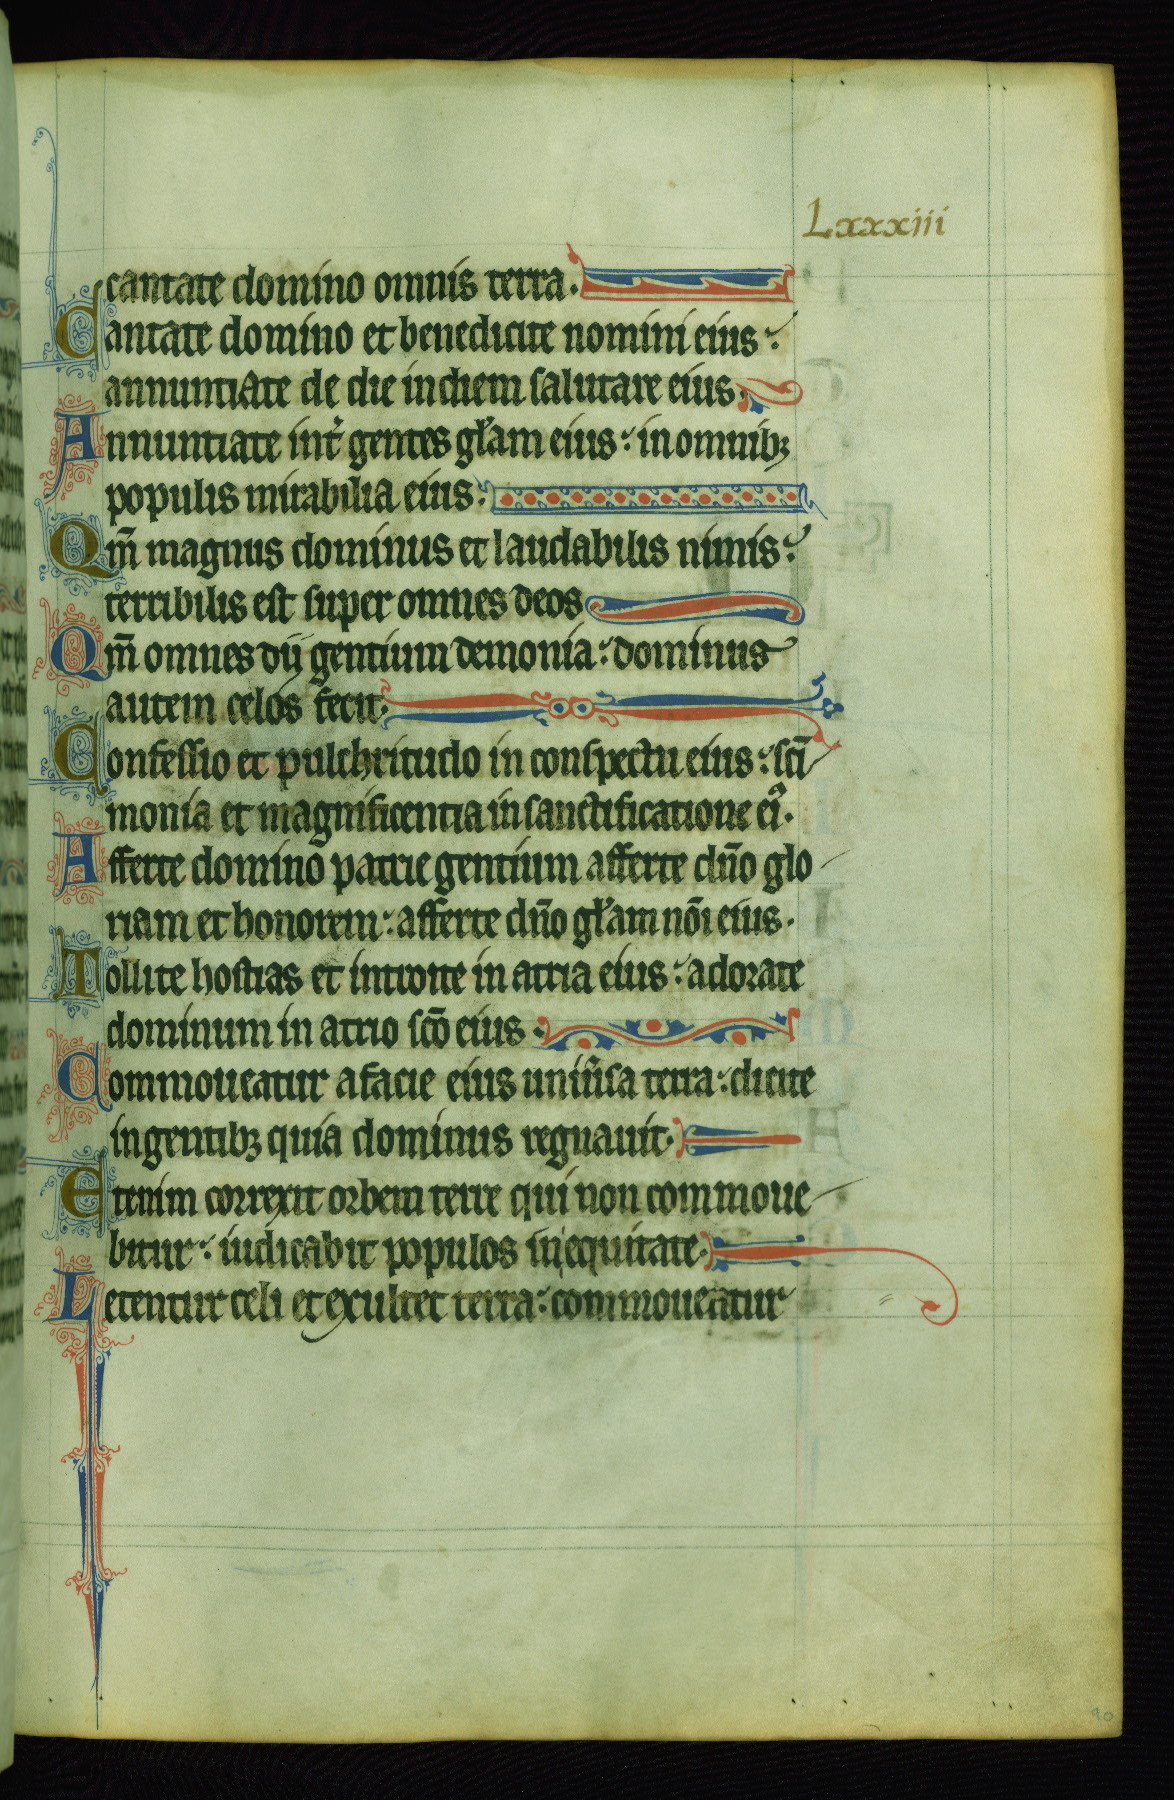 Lxxxiii
cantate domino omnis terra.
Cantate domino et benedicite nomini eius:
annuntiate de die in diem salutare eius.
Annuntiate int̉ gentes gl̃am eius: in omnibꝫ
populis mirabilia eius.
Qm̃ magnus dominus et laudabilis nimis:
terribilis est super omnes deos
Qm̃ omnes dij gentium demonia: dominus
autem celos fecit.
Confessio et pulchritudo in conspectu eius: sc̃i
monia et magnificentia in sanctificatione ei᷒.
Afferte domino patrie gentium afferte dño glo
riam et honorem: afferte dño gl̃am nõi eius.
Tollite hostias et introite in atria eius: adorate
dominum in atrio sc̃o eius.
Commoueatur a facie eius uniũsa terra: dicite
in gentibꝫ quia dominus regnauit.
Etenim correxit orbem terre qui non commoue
bitur: iudicabit populos in equitate.
Letentur celi et exultet terra: commoueatur
90